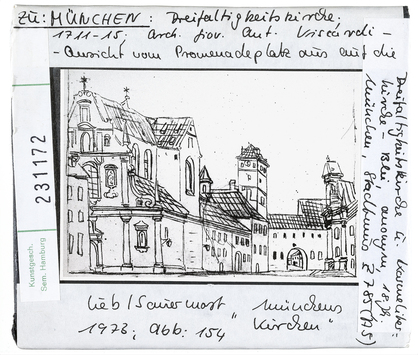 Zu: MÜNCHEN: Dreifaltigkeitskirche,
1711-15; arch. Giov. Ant. Viscardi -
- Ansicht vom Promenadeplatz aus auf die
Dreifaltigkeitskirche u. Karmeliter-
kirche - Blei, anonym, 18. Jh.
München, Stadtmus Z 785 (A5)
231172
Kunstgesch.
Sem. Hamburg
Lieb / Sauermost "Münchens
1973; Abb: 154 Kirchen"